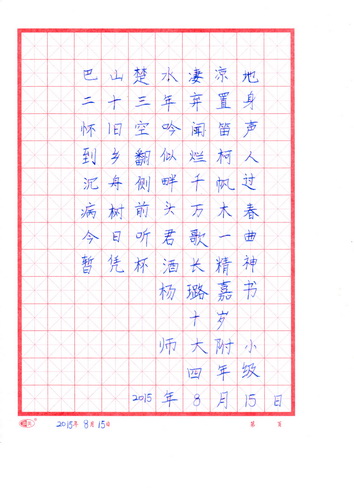 巴山楚水凄凉地
二十三年弃置身
怀旧空吟闻笛声
到乡翻似烂柯人
沉舟侧畔千帆过
病树前头万木春
今日听君歌一曲
暂凭杯酒长精神
杨璐嘉书
十岁
师大附小
四年级
2015年8月15日
2015年8月15日 第 页